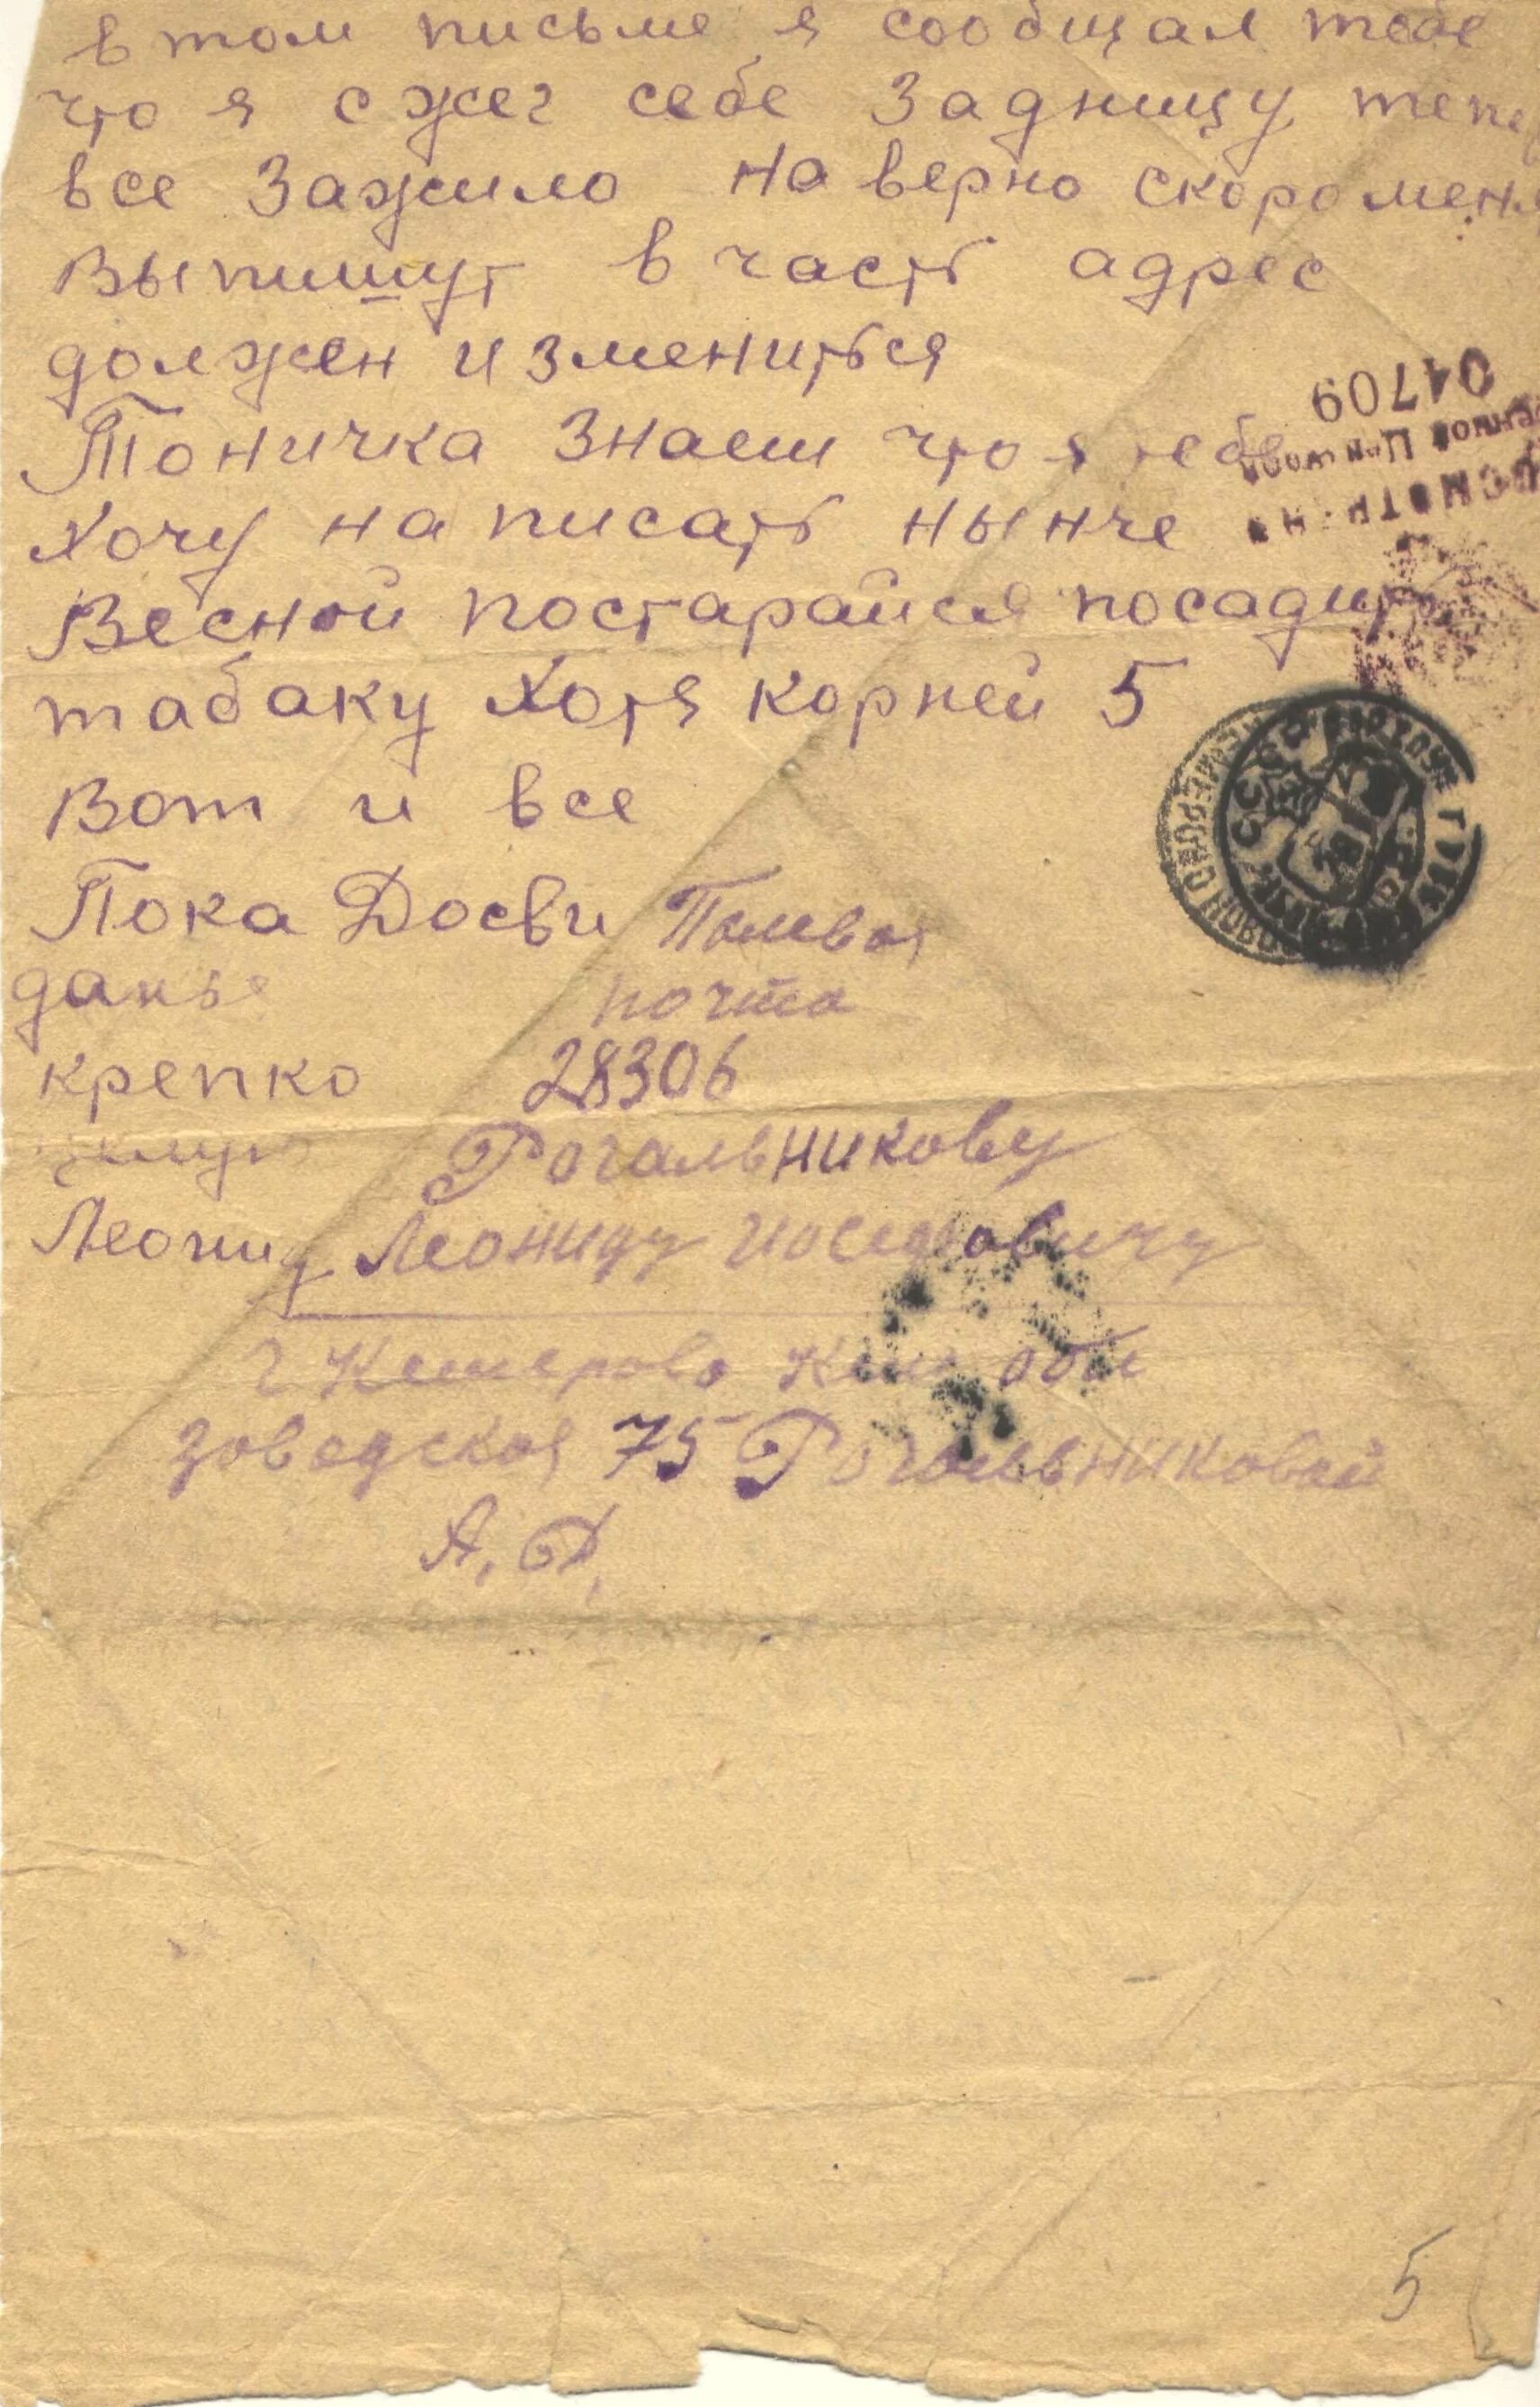 в том письме я сообщал тебе
что я сжег себе Задницу
все Зажило На верно скоро меня
выпишут в часть адрес
должен измениться
Тоничка Знаеш что я тебе
Хочу на писать нынче
Весной постарайся посадить
табаку Хотя корней 5
Вот и все
Пока Досви
данье
крепко
целую
Леонид
Полевая
почта
28306
Рогальникову
Леониду Иосифовичу
г Кемерово Кем обл
Заводская 75 Рогальниковой
А. Д.
04709
5